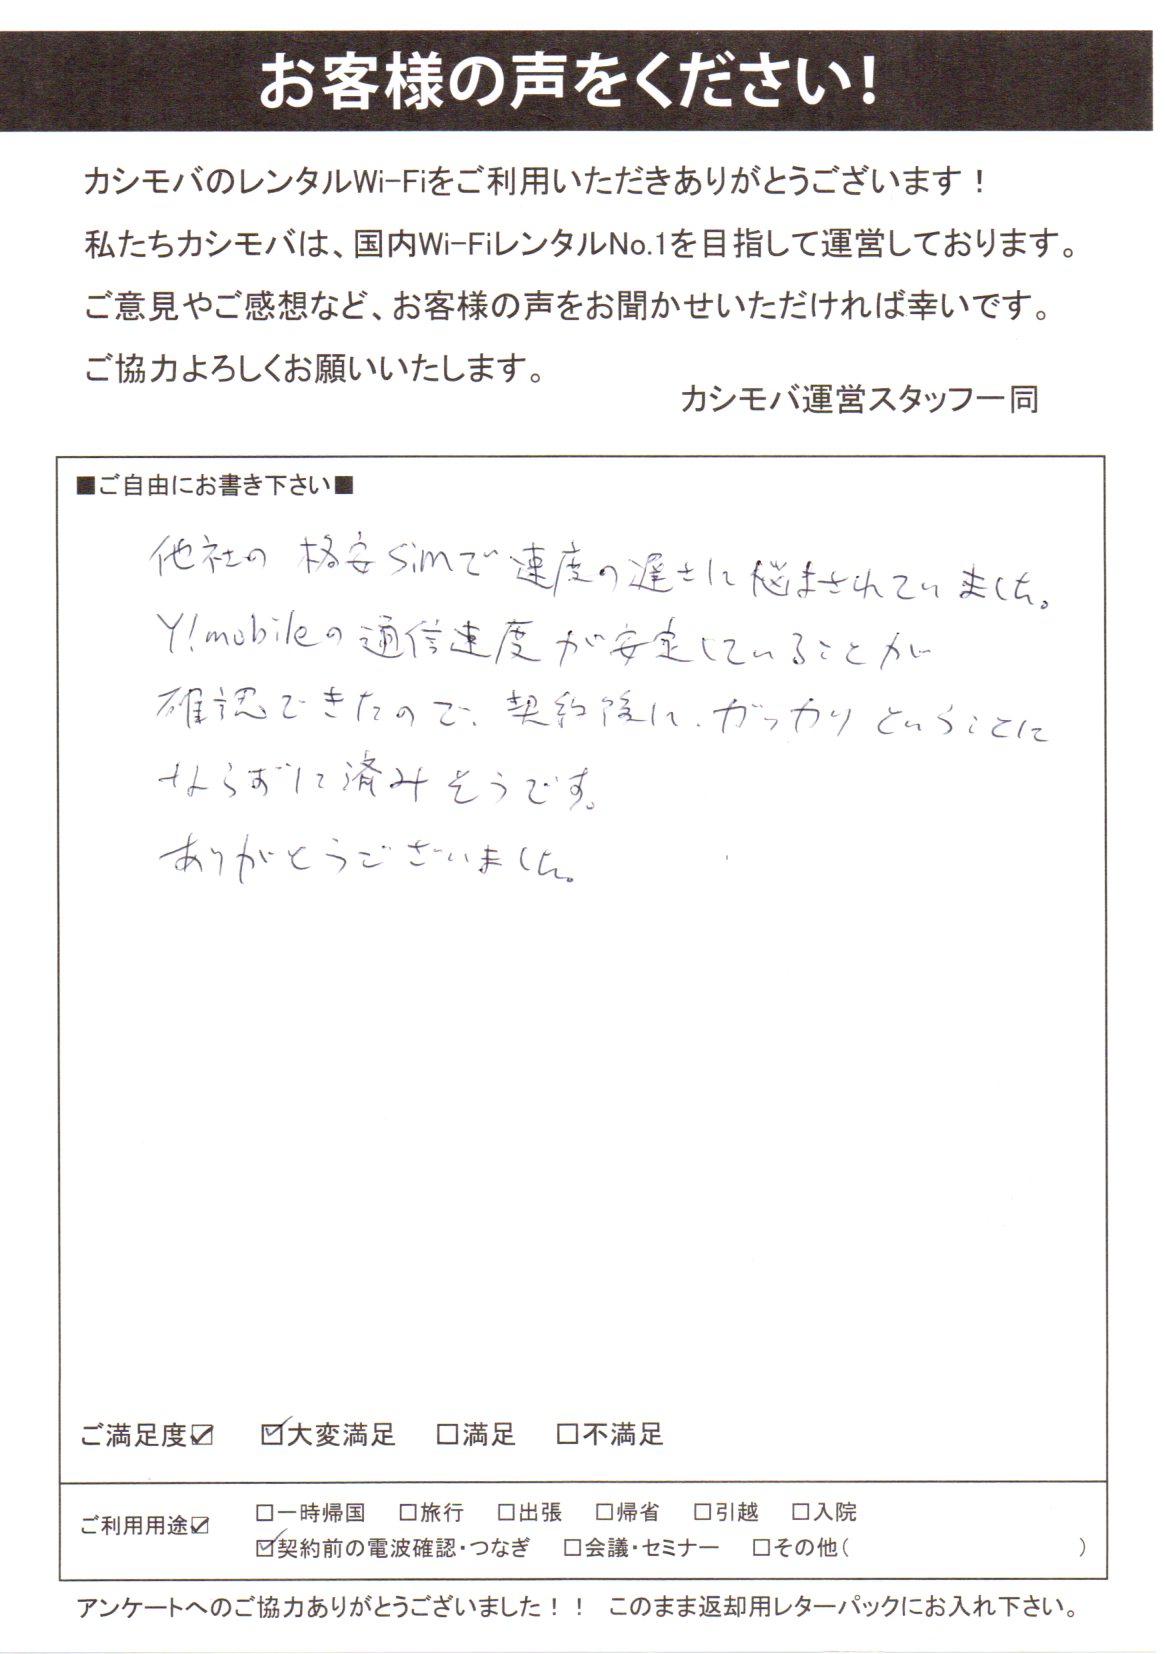 お客様の声をください!
カシモバのレンタルWi-Fiをご利用いただきありがとうございます！
私たちカシモバは、国内Wi-FiレンタルNo.1を目指して運営しております。
ご意見やご感想など、お客様の声をお聞かせいただければ幸いです。
ご協力よろしくお願いいたします。
カシモバ運営スタッフ一同
■ご自由にお書き下さい■
他社の 格安Simで速度の遅さに悩まされていました。
Y!mobileの通信速度が安定していることが
確認できたので、契約後に、ガッカリということに
ならずに済みそうです。
ありがとうございました。
ご満足度☑ ☑大変満足 □満足 □不満足
ご利用用途☑ □一時帰国 □旅行 □出張 □帰省 □引越 □入院
☑契約前の電波確認・つなぎ □会議・セミナー □その他( )
アンケートへのご協力ありがとうございました！！ このまま返却用レターパックにお入れ下さい。